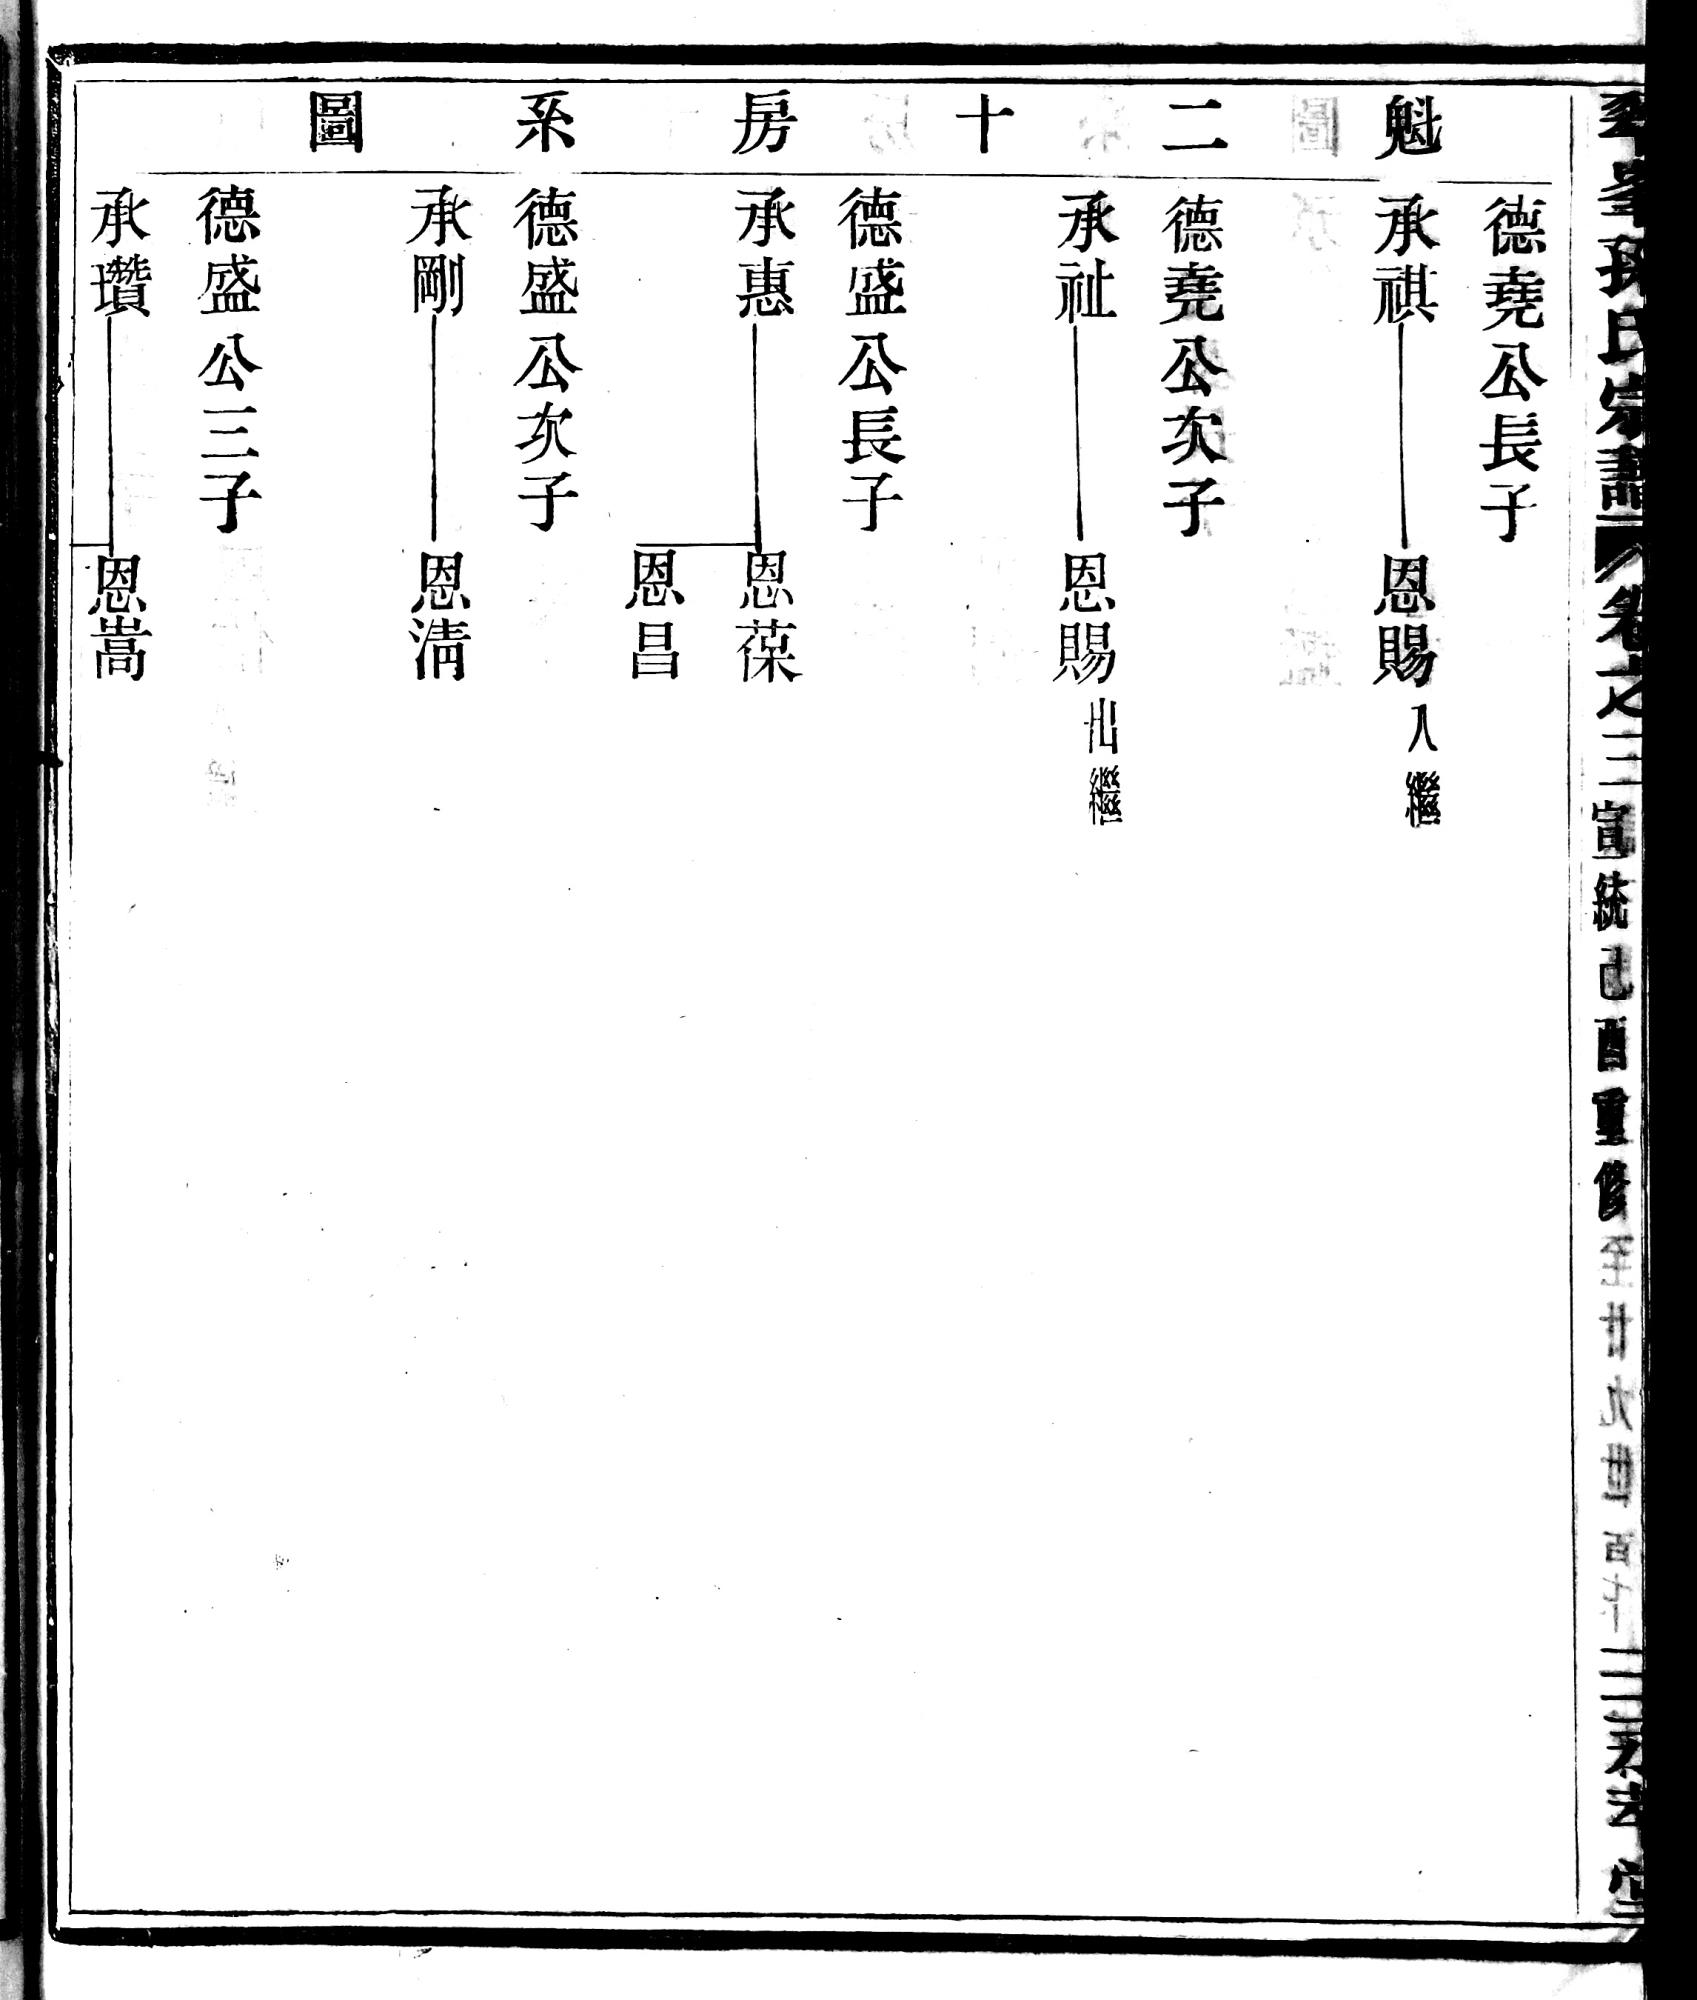 魁二十房系圖
德堯公長子
承祺
恩賜入繼
德堯公次子
承祉
恩賜出繼
德盛公長子
承惠
恩葆
恩昌
德盛公次子
承剛
恩淸
德盛公三子
承瓚
恩嵩
孫氏宗譜
卷之三
宣統己酉重修
至廿九世
百七十
堂